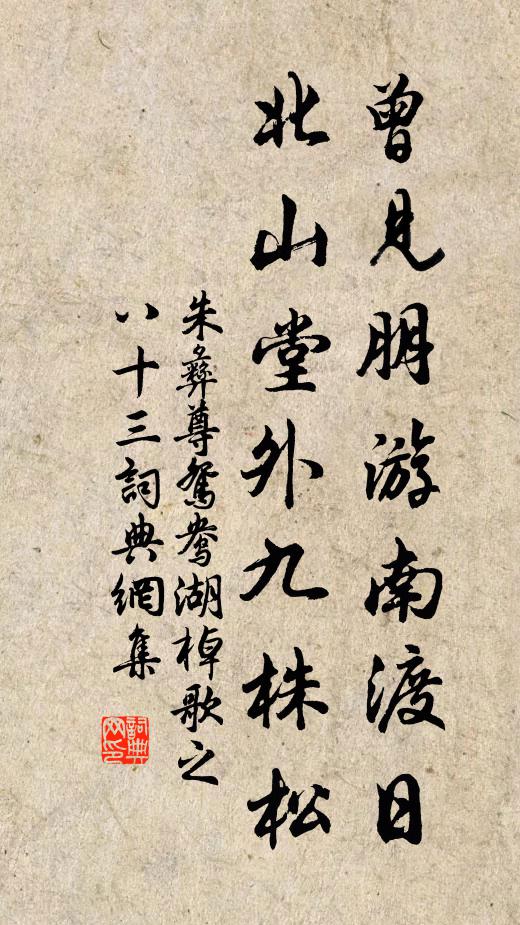 曾見朋游南渡日
北山堂外九株松
朱彝尊鴛鴦湖棹歌之
八十三詞典網集
詞典
网印